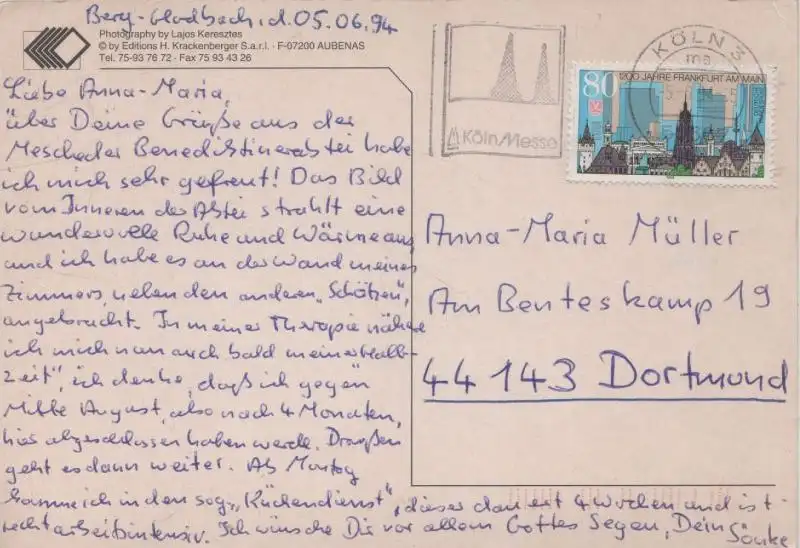 Berg-Gladbach, d. 05.06.94
Photography by Lajos Keresztes
© by Editions H. Krackenberger S.a.r.l. · F-07200 AUBENAS
Tel. 75-93 76 72 · Fax 75 93 43 26
Liebe Anna-Maria,
über Deine Grüße aus der
Mescheder Benediktinerabtei habe
ich mich sehr gefreut! Das Bild
vom Inneren der Abtei strahlt eine
wundervolle Ruhe und Wärme aus,
und ich habe es an der Wand meines
Zimmers, neben den anderen „Schätzen",
angebracht. In meiner Therapie nähere
ich mich nun auch bald meiner „Halb-
zeit", ich denke, daß ich gegen
Mitte August, also nach 4 Monaten,
hier abgeschlossen haben werde. Draußen
geht es dann weiter. Ab Montag
komme ich in den sog. „Küchendienst", dieser dauert 4 Wochen und ist
recht arbeitsintensiv. Ich wünsche Dir vor allem Gottes Segen, Dein
Sönke
KölnMesse
KÖLN 3
ma
80
1200 JAHRE FRANKFURT AM MAIN
Anna-Maria Müller
Am Benteskamp 19
44143 Dortmund